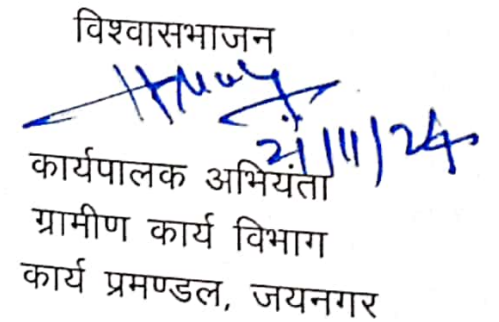 विश्वासभाजन
21/11/24
कार्यपालक अभियंता
ग्रामीण कार्य विभाग
कार्य प्रमण्डल, जयनगर